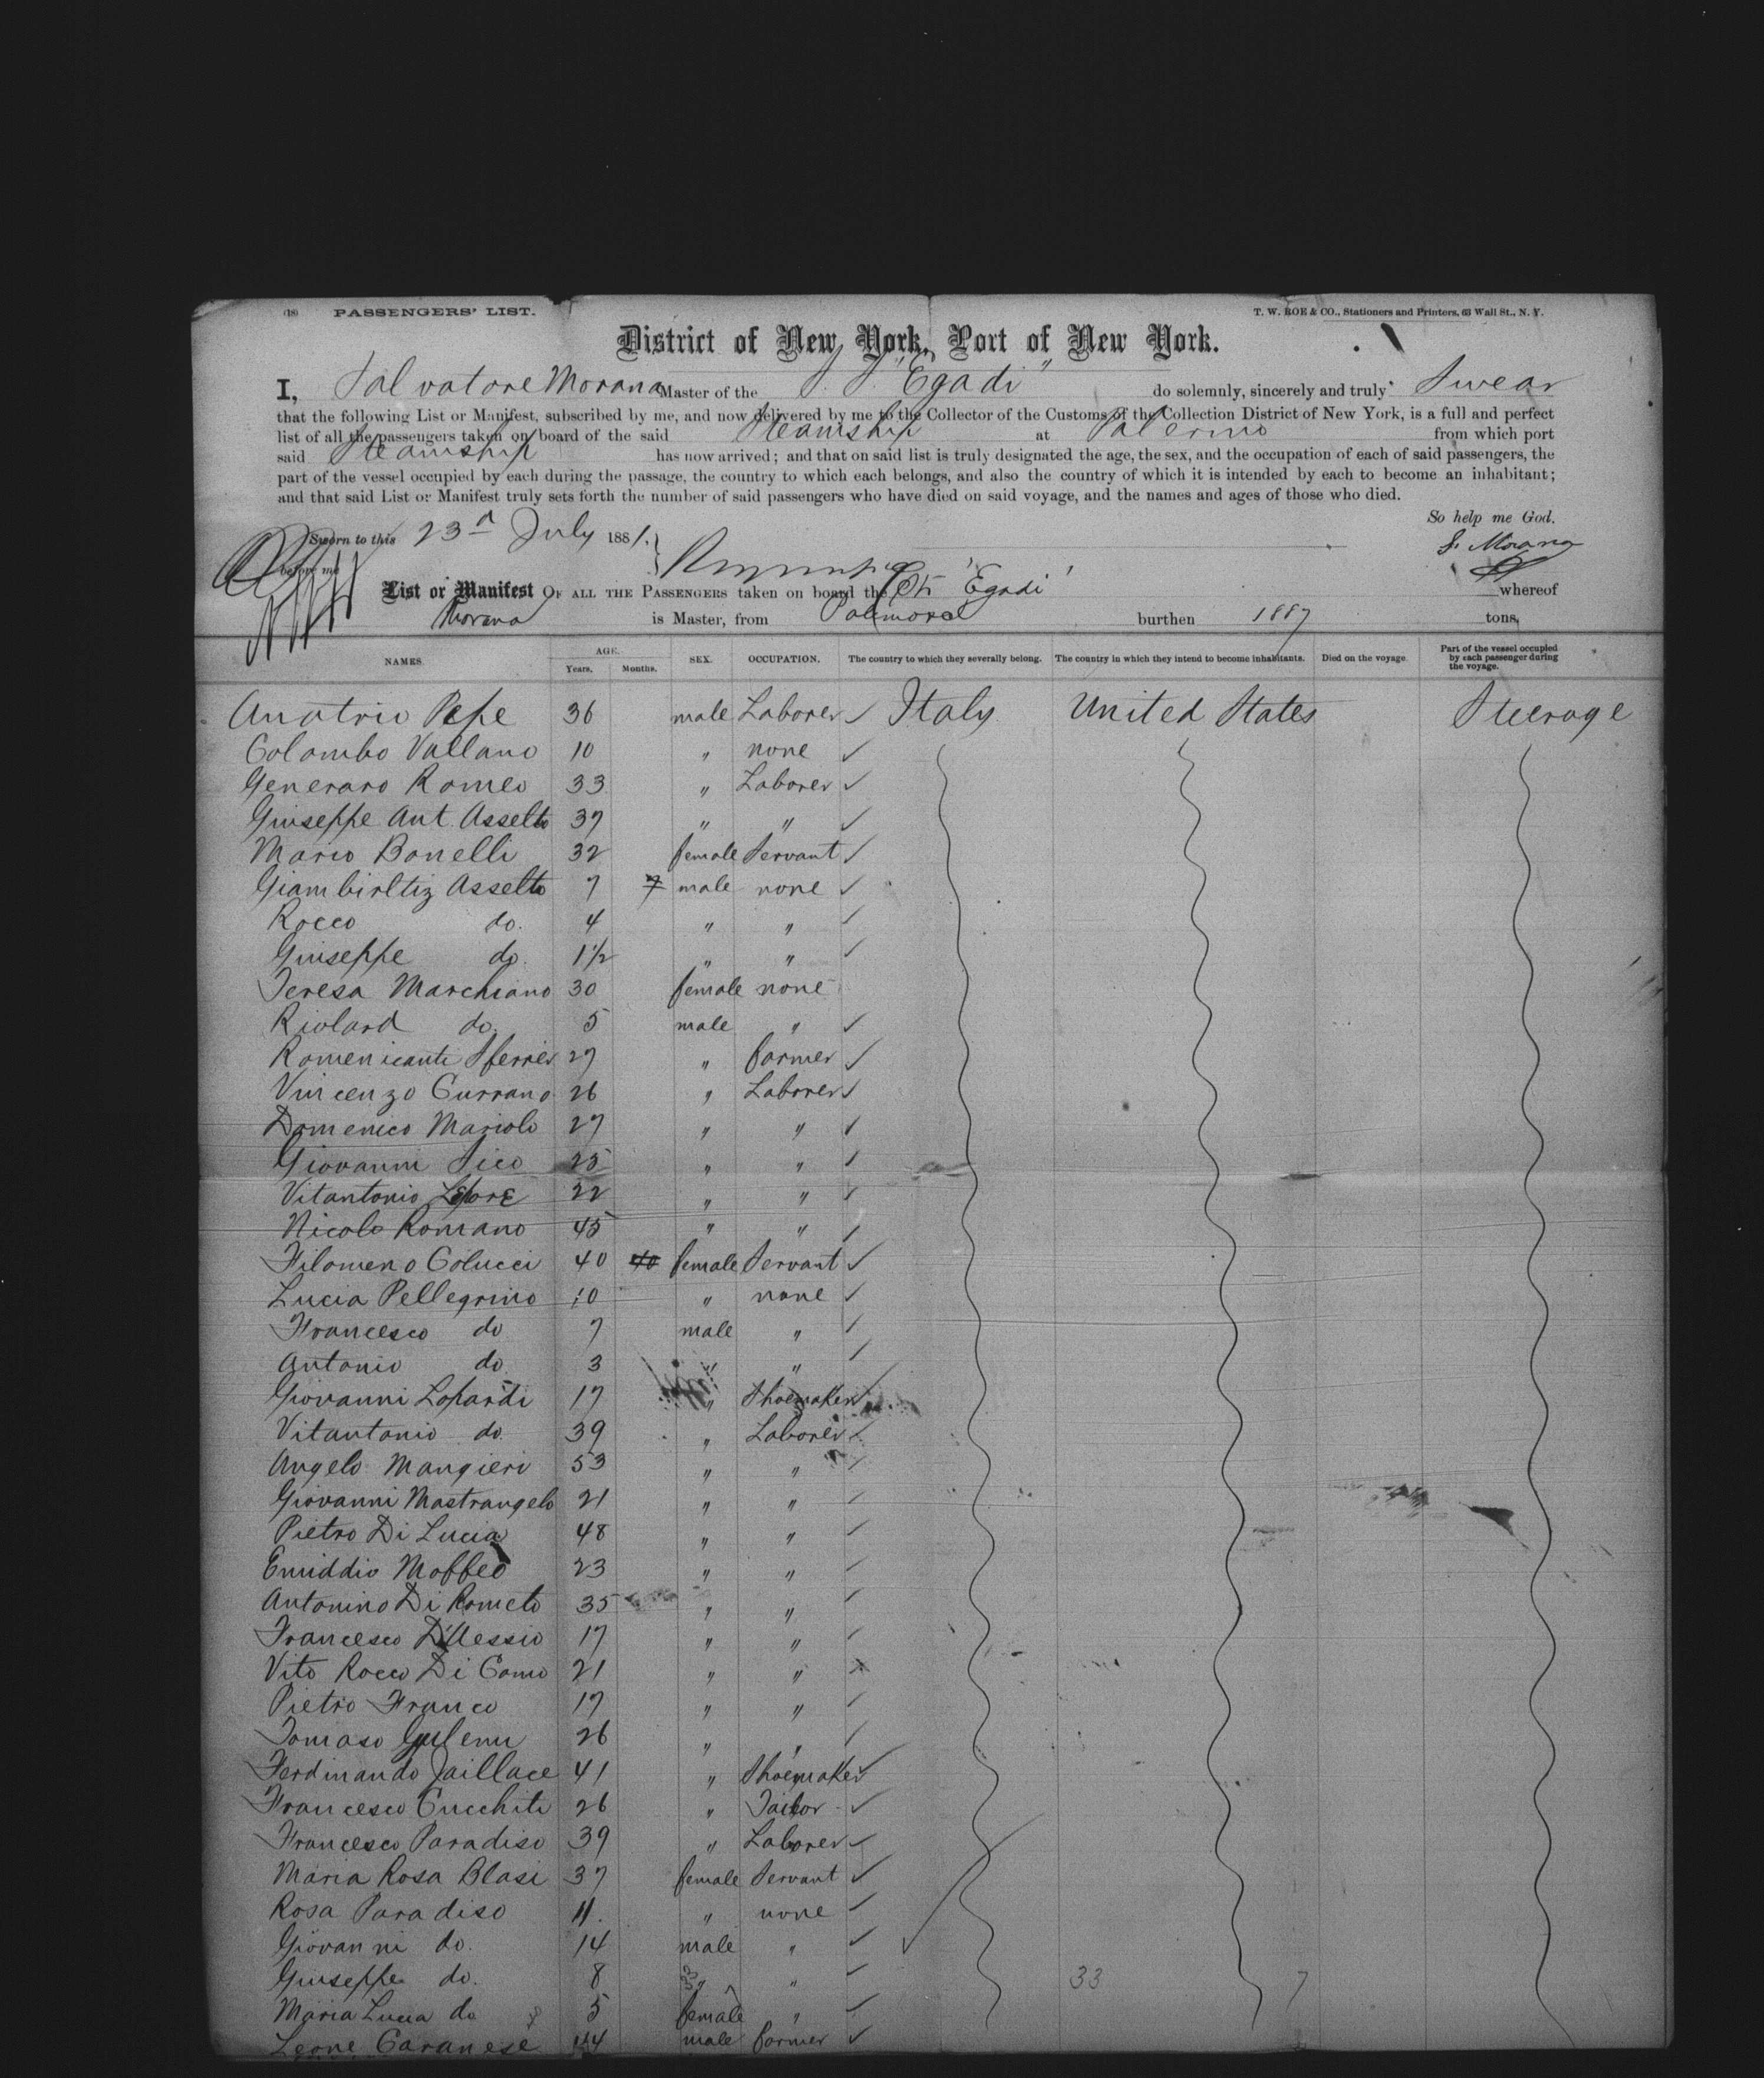 (18) PASSENGERS' LIST. T. W. ROE & CO., Stationers and Printers, 63 Wall St., N. Y.
District of New York, Port of New York.
I, Salvatore Morana Master of the S. S. "Egadi" do solemnly, sincerely and truly Swear
that the following List or Manifest, subscribed by me, and now delivered by me to the Collector of the Customs of the Collection District of New York, is a full and perfect
list of all the passengers taken on board of the said Steamship at Palermo from which port
said Steamship has now arrived; and that on said list is truly designated the age, the sex, and the occupation of each of said passengers, the
part of the vessel occupied by each during the passage, the country to which each belongs, and also the country of which it is intended by each to become an inhabitant;
and that said List or Manifest truly sets forth the number of said passengers who have died on said voyage, and the names and ages of those who died.
So help me God.
Sworn to this 23d July 1881. S. Morana
before me
List or Manifest OF ALL THE PASSENGERS taken on board the "Egadi" whereof
Morana is Master, from burthen 1887 tons,
NAMES. AGE. Years. Months. SEX. OCCUPATION. The country to which they severally belong. The country in which they intend to become inhabitants. Died on the voyage. Part of the vessel occupied by each passenger during the voyage.
Pepe 36 male Laborer Italy United States Steerage
Colombo Vallano 10 " none
Generaro Romeo 33 " Laborer
Giuseppe Ant. Asselto 37 " "
Maria Bonelli 32 female Servant
Asselto 7 7 male none
Rocco do. 4 " "
Giuseppe do. 1½ " "
Teresa Marchiano 30 female none
do. 5 male "
27 " farmer
Vincenzo Currano 26 " Laborer
Domenico Mariolo 27 " "
Giovanni Sico 25 " "
Vitantonio Lepore 22 " "
Nicola Romano 45 " "
Filomena Colucci 40 40 female Servant
Lucia Pellegrino 10 " none
Francesco do 7 male "
Antonio do 3 " "
Giovanni Lopardi 17 " Shoemaker
Vitantonio do. 39 " Laborer
Angelo Mangieri 53 " "
Giovanni Mastrangelo 21 " "
Pietro Di Lucia 48 " "
Emiddio Maffeo 23 " "
Antonino Di Rometo 35 " "
Francesco D'Alessio 17 " "
Vito Rocco Di Como 21 " "
Pietro Franco 17 " "
Tomaso 26 " "
Ferdinando Jaillace 41 " Shoemaker
Francesco Cucchiti 26 " Tailor
Francesco Paradiso 39 " Laborer
Maria Rosa Blasi 37 female Servant
Rosa Paradiso 11. " none
Giovanni do. 14 male "
Giuseppe do. 8 " " 33 7
Maria Lucia do 5 female "
Leone Caranese 44 male farmer